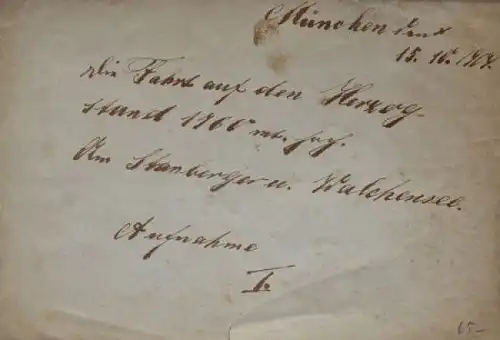 München den
15. 10. 1904.
Die Fahrt auf den Herzog-
stand 1760 mt.
Am Starnberger u. Walchensee.
Aufnahme
I.
65-